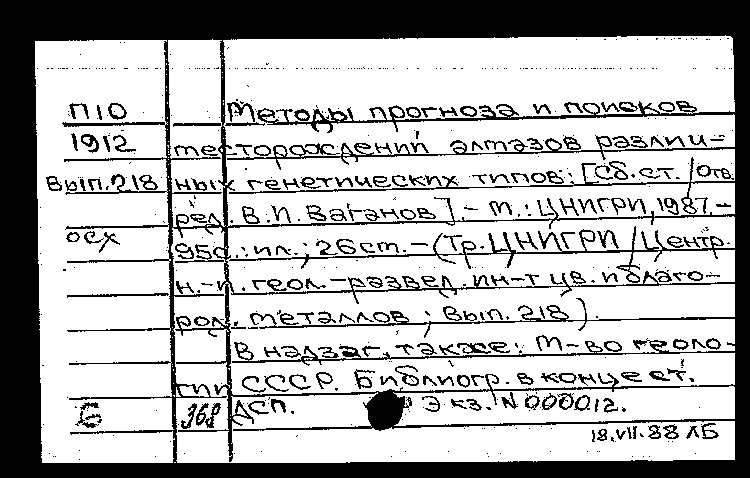 П10 Методы прогноза и поисков
1912 месторождений алмазов различ-
Вып.218 ных генетических типов: [Сб. ст. / Отв.
ред. В.И. Ваганов]. - М.: ЦНИГРИ, 1987. -
осх 95с.: ил.; 26см. - (Тр. ЦНИГРИ / Центр.
н.-и. геол.-развед. ин-т цв. и благо-
род. металлов; Вып. 218).
В надзаг. также: М-во геоло-
гии СССР. Библиогр. в конце ст.
Б 368 ДСП. Экз. N 000012.
18.VII.88 ЛБ